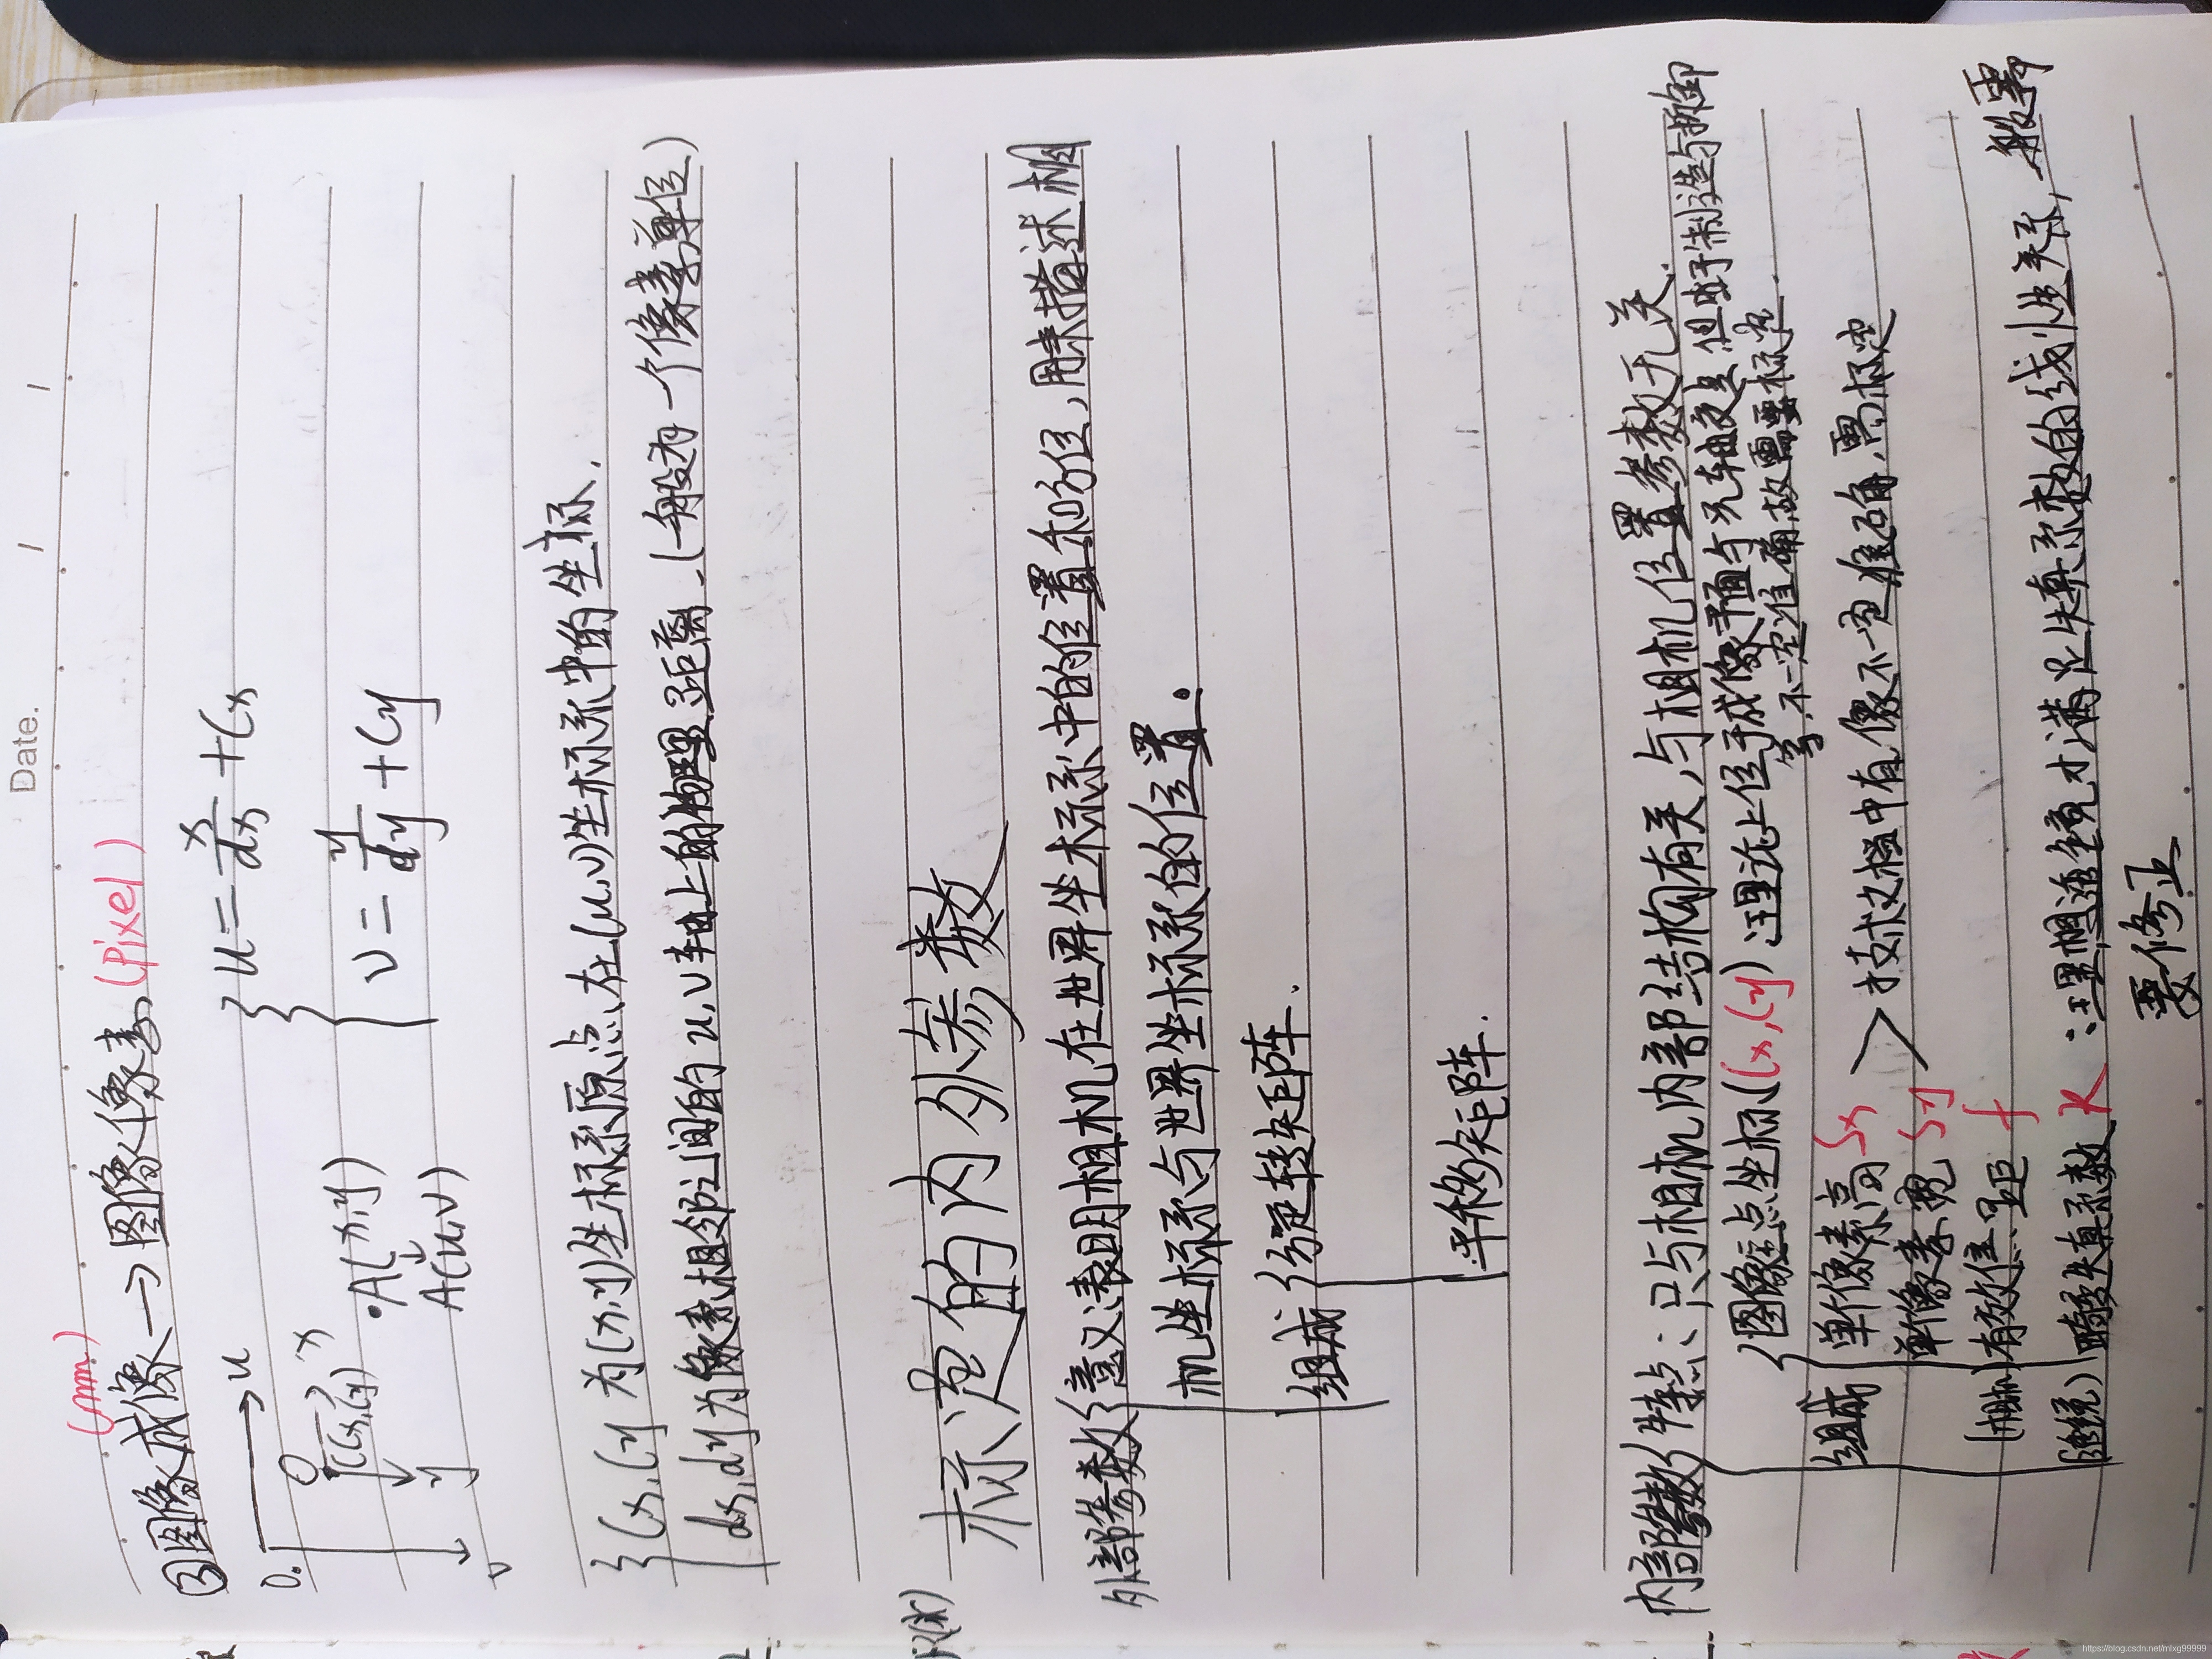 Date.
(mm)
③图像成像→图像像素(Pixel)
O. → u
O x
(Cx,Cy)
y
v
·A(x,y)
↓
A(u,v)
u = x/dx + Cx
v = y/dy + Cy
Cx,Cy 为(x,y)坐标系原点在(u,v)坐标系中的坐标.
dx,dy为像素相邻之间的u,v轴上的物理距离.(一般为一个像素单位)
标定的内外参数
外部参数 意义:表明相机在世界坐标系中的位置和方位,用来描述相
机坐标系与世界坐标系的位置。
组成 旋转矩阵.
平移矩阵.
内部参数 特点:只与相机内部结构有关,与相机位置参数无关.
组成 图像点坐标(Cx,Cy) 注理论上位于成像平面与光轴交点 但由于制造与拆卸
等,不一定准确故需要标定.
单像素高Sx
单像素宽Sy > 技术文档中有,像不一定准确,需标定
(相机)有效焦距 f
(镜)畸变失真系数 K :注:理想透镜才满足失真系数的线性关系,一般需
要修正
https://blog.csdn.net/mlxg99999